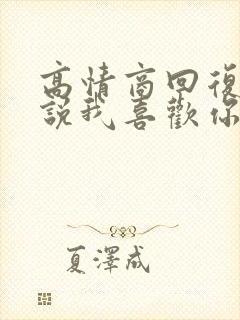 高情商回復
說我喜歡你
夏澤成